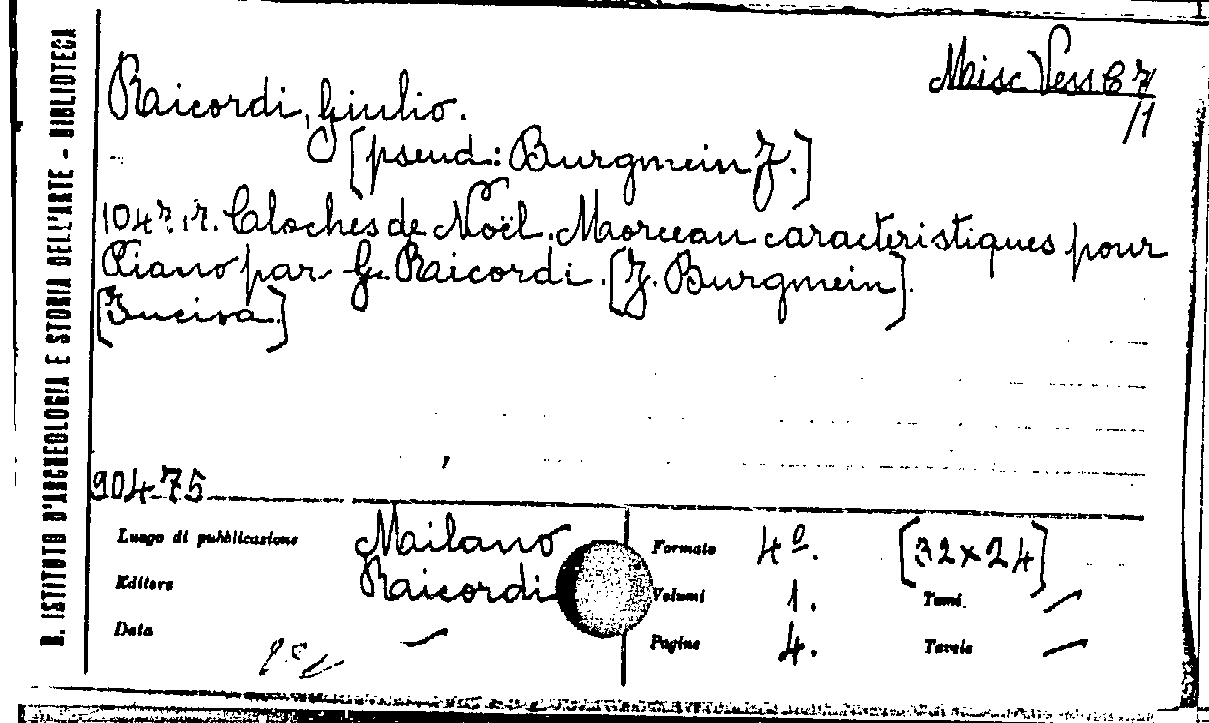 R. ISTITUTO D'ARCHEOLOGIA E STORIA DELL'ARTE - BIBLIOTECA
Misc Vess B 7
/1
Ricordi, Giulio.
[pseud: Burgmein J.]
Cloches de Noël. Morceau caracteristiques pour
Piano par G. Ricordi. [J. Burgmein].
[Incisa.]
90475
Luogo di pubblicazione Milano
Editore Ricordi
Data —
Formato 4º. [32x24]
Volumi 1. Tomi —
Pagine 4. Tavole —